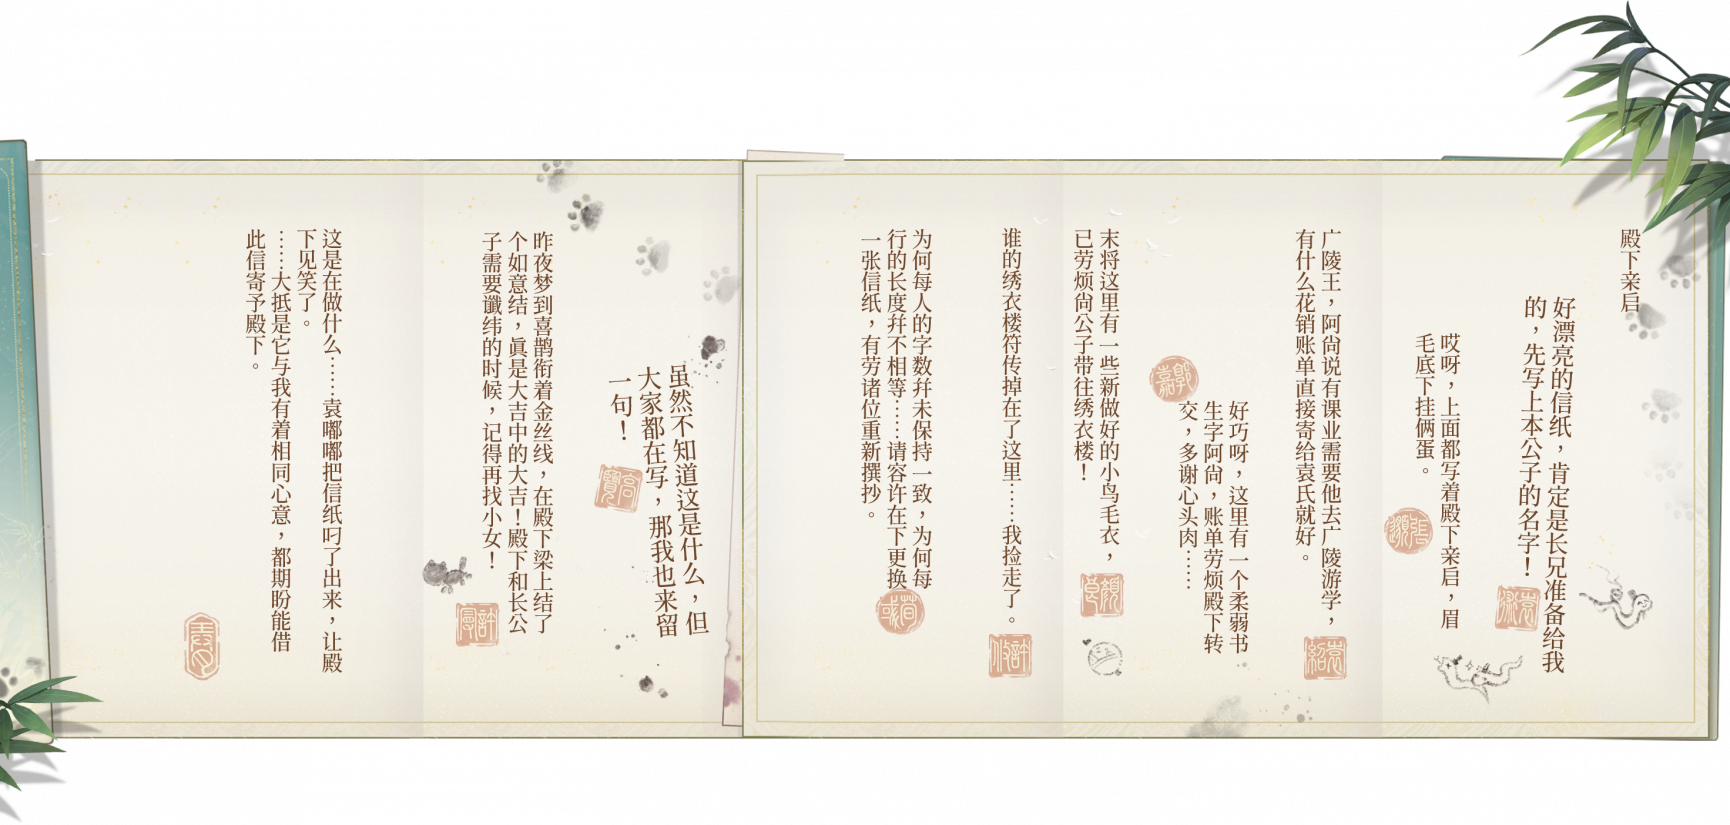 殿下亲启
好漂亮的信纸，肯定是长兄准备给我
的，先写上本公子的名字！
袁术
哎呀，上面都写着殿下亲启，眉
毛底下挂俩蛋。
张邈
广陵王，阿尚说有课业需要他去广陵游学，
有什么花销账单直接寄给袁氏就好。
袁绍
好巧呀，这里有一个柔弱书
生字阿尚，账单劳烦殿下转
交，多谢心头肉……
郭嘉
末将这里有一些新做好的小鸟毛衣，
已劳烦尚公子带往绣衣楼！
颜良
谁的绣衣楼符传掉在了这里……我捡走了。
許攸
为何每人的字数并未保持一致，为何每
行的长度并不相等……请容许在下更换
一张信纸，有劳诸位重新撰抄。
荀彧
虽然不知道这是什么，但
大家都在写，那我也来留
一句！
高覽
昨夜梦到喜鹊衔着金丝线，在殿下梁上结了
个如意结，真是大吉中的大吉！殿下和长公
子需要谶纬的时候，记得再找小女！
許曼
这是在做什么……袁嘟嘟把信纸叼了出来，让殿
下见笑了。
……大抵是它与我有着相同心意，都期盼能借
此信寄予殿下。